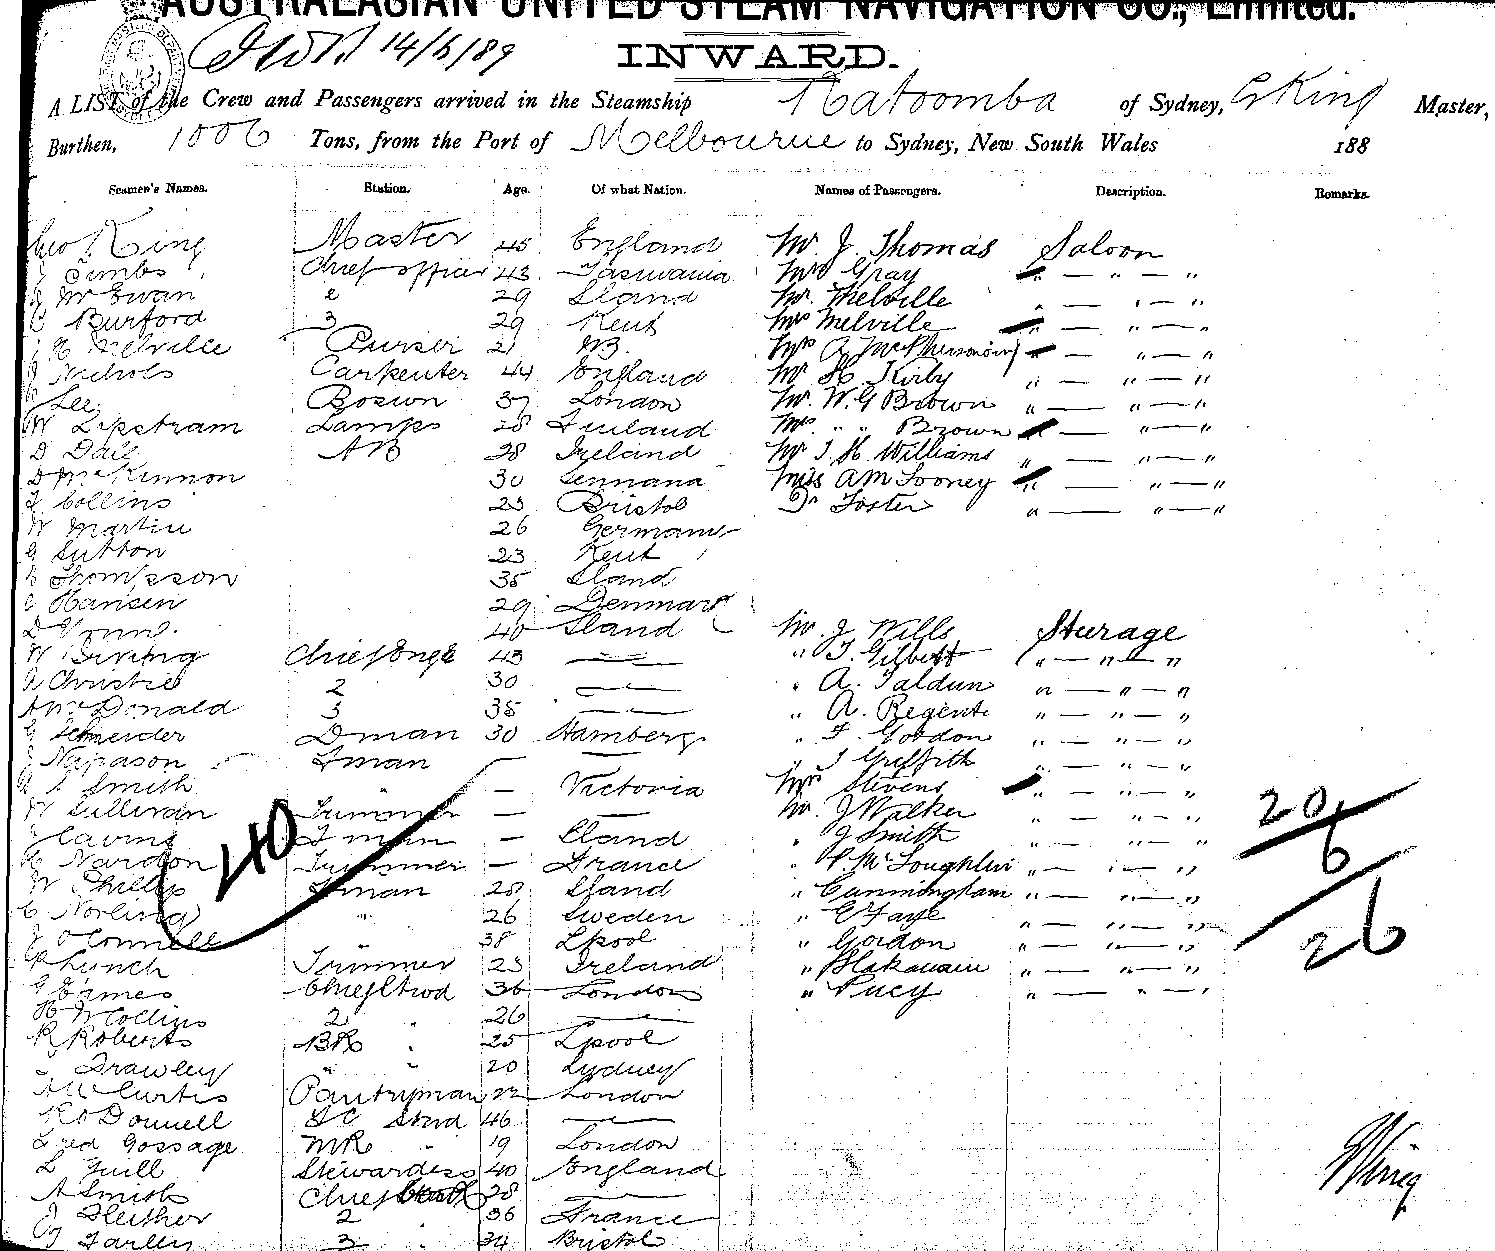 AUSTRALASIAN UNITED STEAM NAVIGATION CO., Limited.
14/6/89
INWARD.
A LIST of the Crew and Passengers arrived in the Steamship Katoomba of Sydney, G King Master,
Burthen, 1006 Tons, from the Port of Melbourne to Sydney, New South Wales 188
Seamen's Names. Station. Age. Of what Nation. Names of Passengers. Description. Remarks.
Geo King Master 45 England Mr. J. Thomas Saloon
Timbs Chief officer 43 Tasmania Mrs Gray " — " — "
McEwan 2 29 Sland Mr. Melville " — " — "
Burford 3 29 Kent Mrs Melville " — " — "
Melville Purser 21 NZ. Mrs A. " — " — "
Nichols Carpenter 44 England Mr H. Kirby " — " — "
Lee Bosun 37 London Mr. W. G Brown " — " — "
W Lipstram Lamps 28 Finland Mrs. " " Brown " — " — "
D Dail AB 28 Ireland Mr T. H. Williams " — " — "
D McKinnon 30 Miss AM Looney " — " — "
Collins 25 Bristol Dr Foster " — " — "
W Martin 26 Germany
G Sutton 23 Kent
Thompsson 35 Sland
Hansen 29 Denmark
D 40 Sland Mr. J Wills Sturage
W Chief Engr 43 — " T. Gilbert " — " — "
A Christie 2 30 — " A. Taldun " — " — "
A McDonald 3 35 — " A. Regente " — " — "
G Schneider Dman 30 Hamberg " F. Gordon " — " — "
Napason Fman — " Griffith " — " — "
Smith " — Victoria Mrs Stevens " — " — "
W Sullivan Trimmer — — Mr. J Walker " — " — "
Fman — Sland " J Smith " — " — "
Nardon Trimmer — France " P. McLoughlin " — " — "
W Phillips Fman 28 Sland " Cunningham " — " — "
C Norling " 26 Sweden " E Faye " — " — "
J O'Connell " 38 Lpool " Gordon " — " — "
P Lynch Trimmer 25 Ireland " " — " — "
G Eames Chief Stwd 36 London " Pucy " — " — "
H W Collins 2 " 26 —
R Roberts BR " 25 Lpool
Frawley " " 20 Sydney
A W Curtis Pantryman 22 London
R O Donnell SC Stwd 46 —
Fred Gossage MR " 19 London
L Guill Stewardess 40 England
A Smith Chief Cook 28 —
J Fleither 2 " 36 France
Farley 3 " 34 Bristol
40
20
6
26